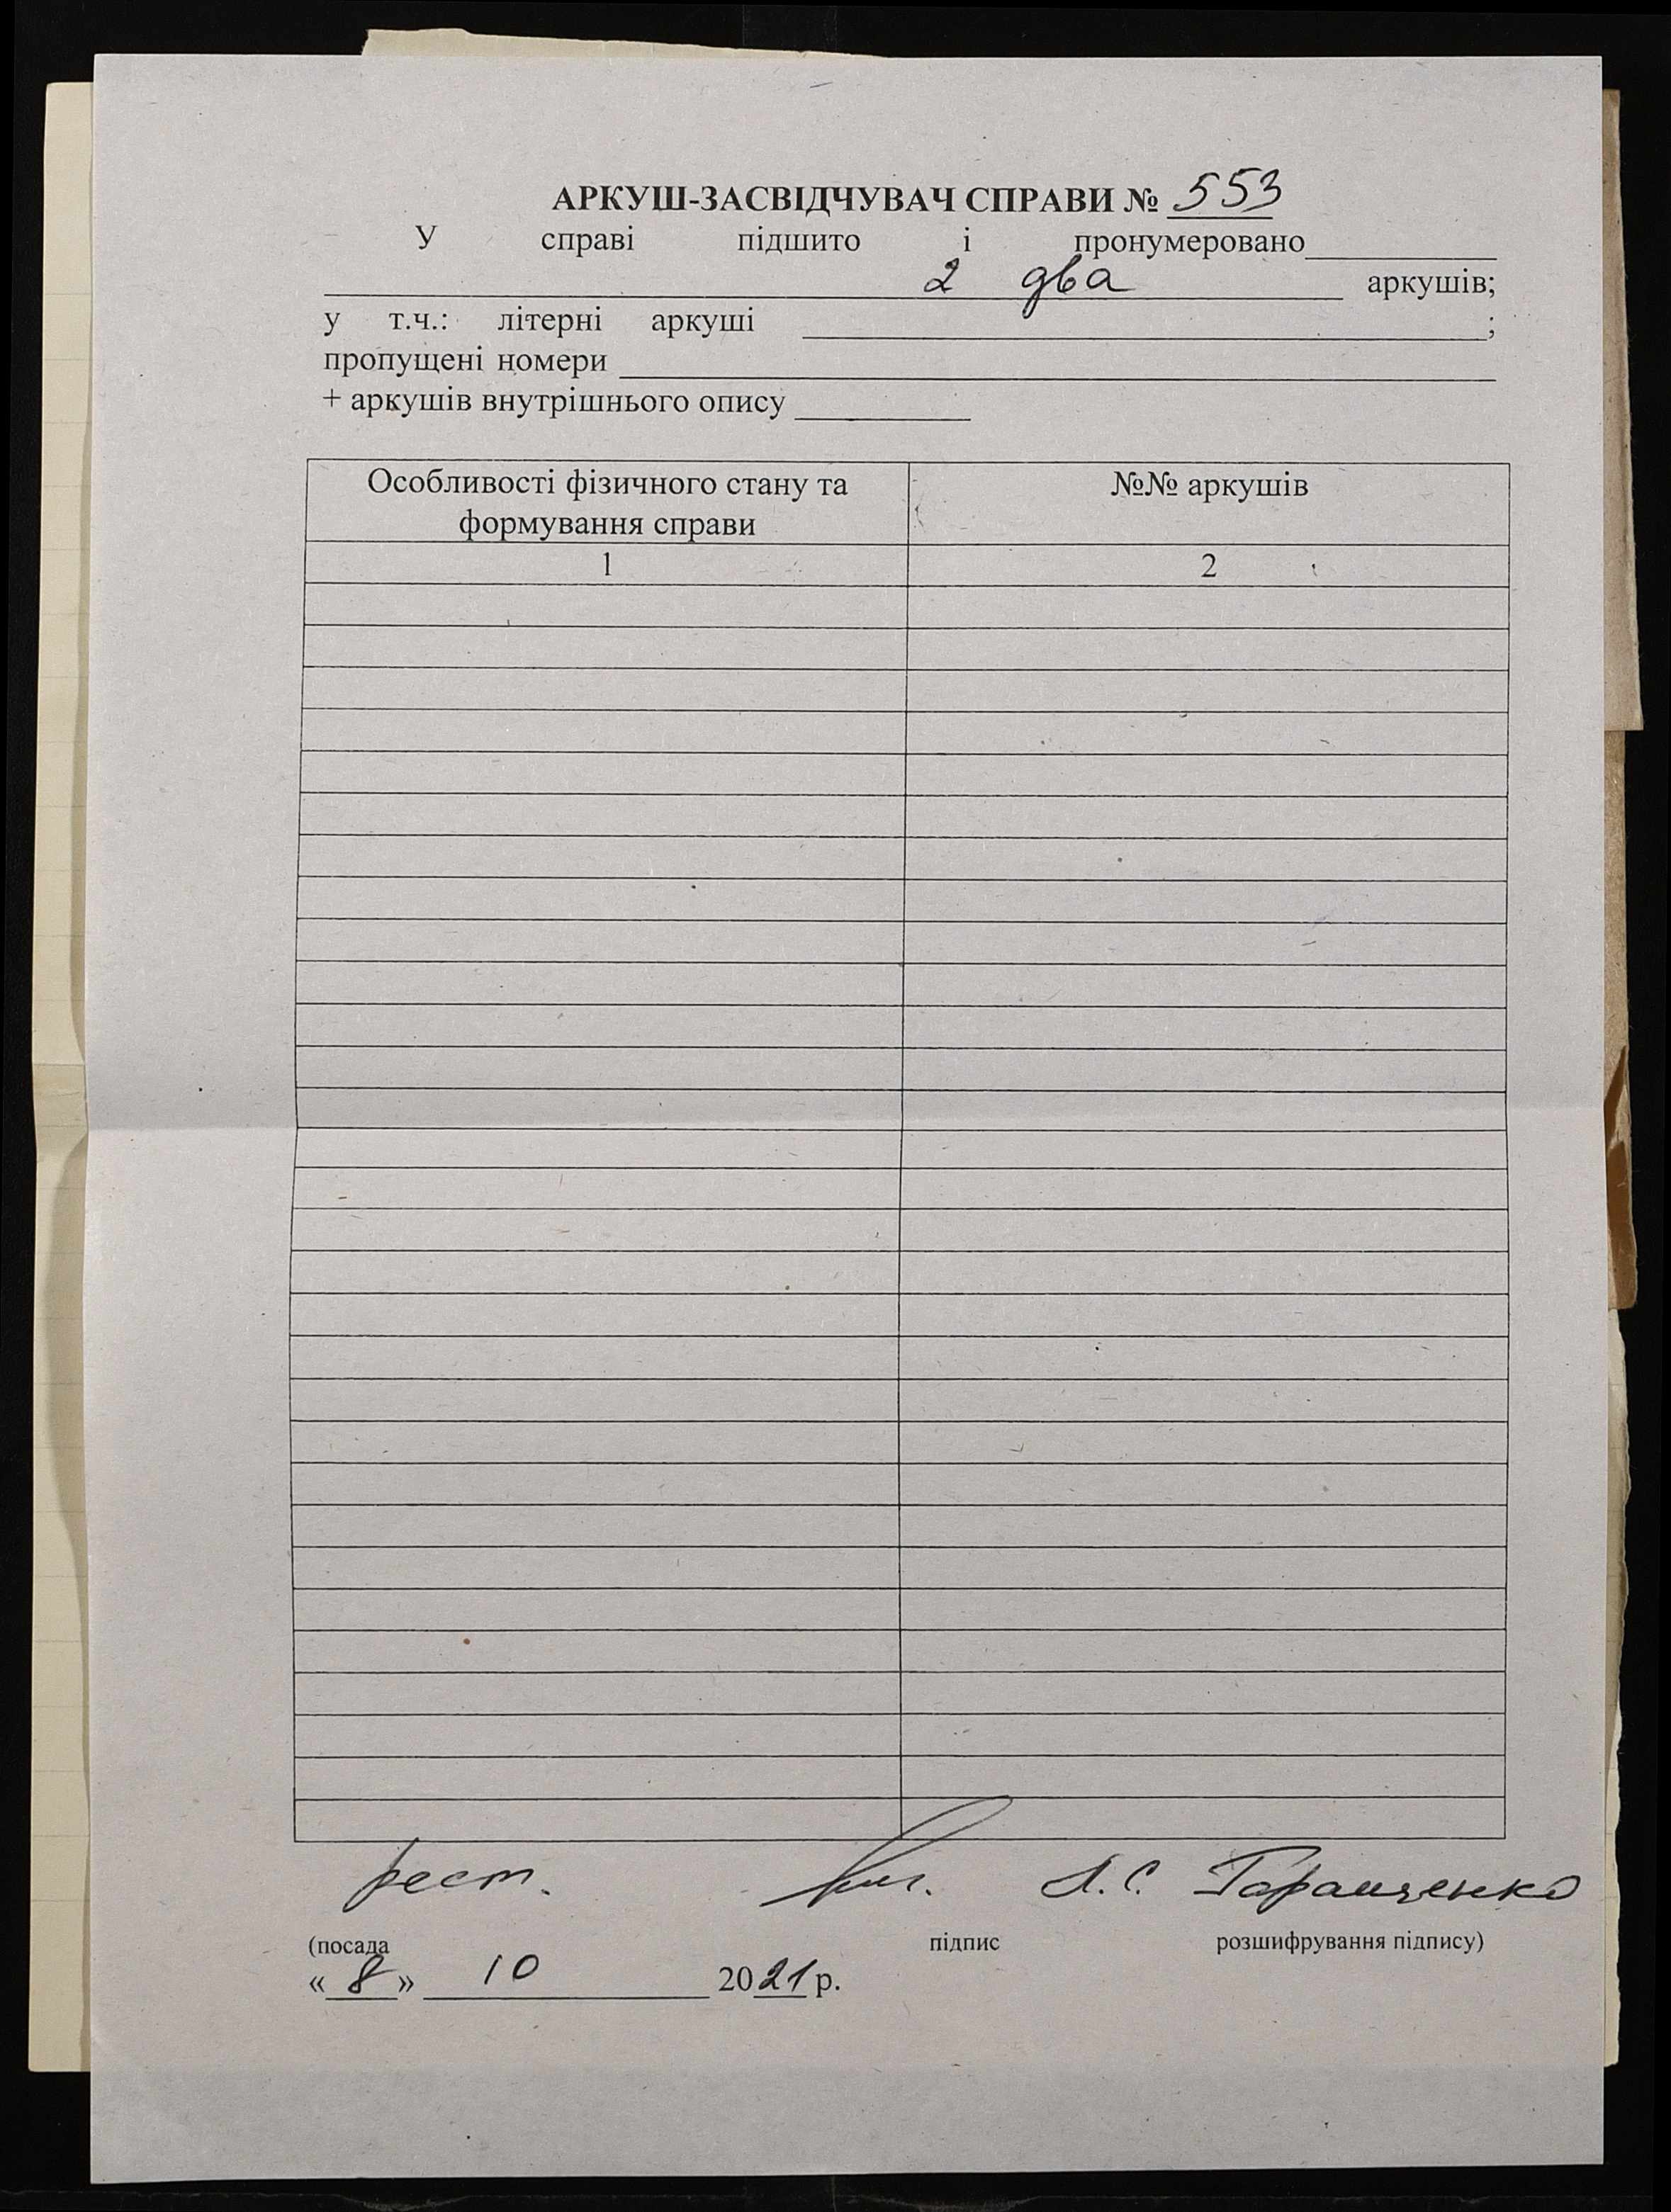 АРКУШ-ЗАСВІДЧУВАЧ СПРАВИ № 553
У справі підшито і пронумеровано
2 два аркушів;
у т.ч.: літерні аркуші ;
пропущені номери
+ аркушів внутрішнього опису
Особливості фізичного стану та
формування справи
№№ аркушів
1 2
рест. Гаращенко
(посада підпис розшифрування підпису)
«8» 10 2021 р.